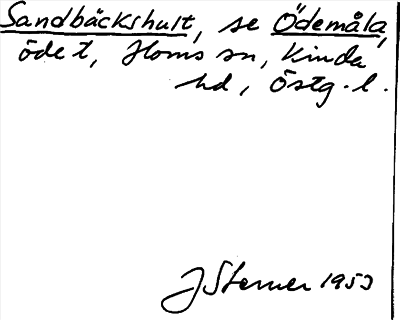 Sandbäckshult, se Ödemåla,
öde t, Horns sn, Kinda
hd, Östg. l.
J Sterner 1953